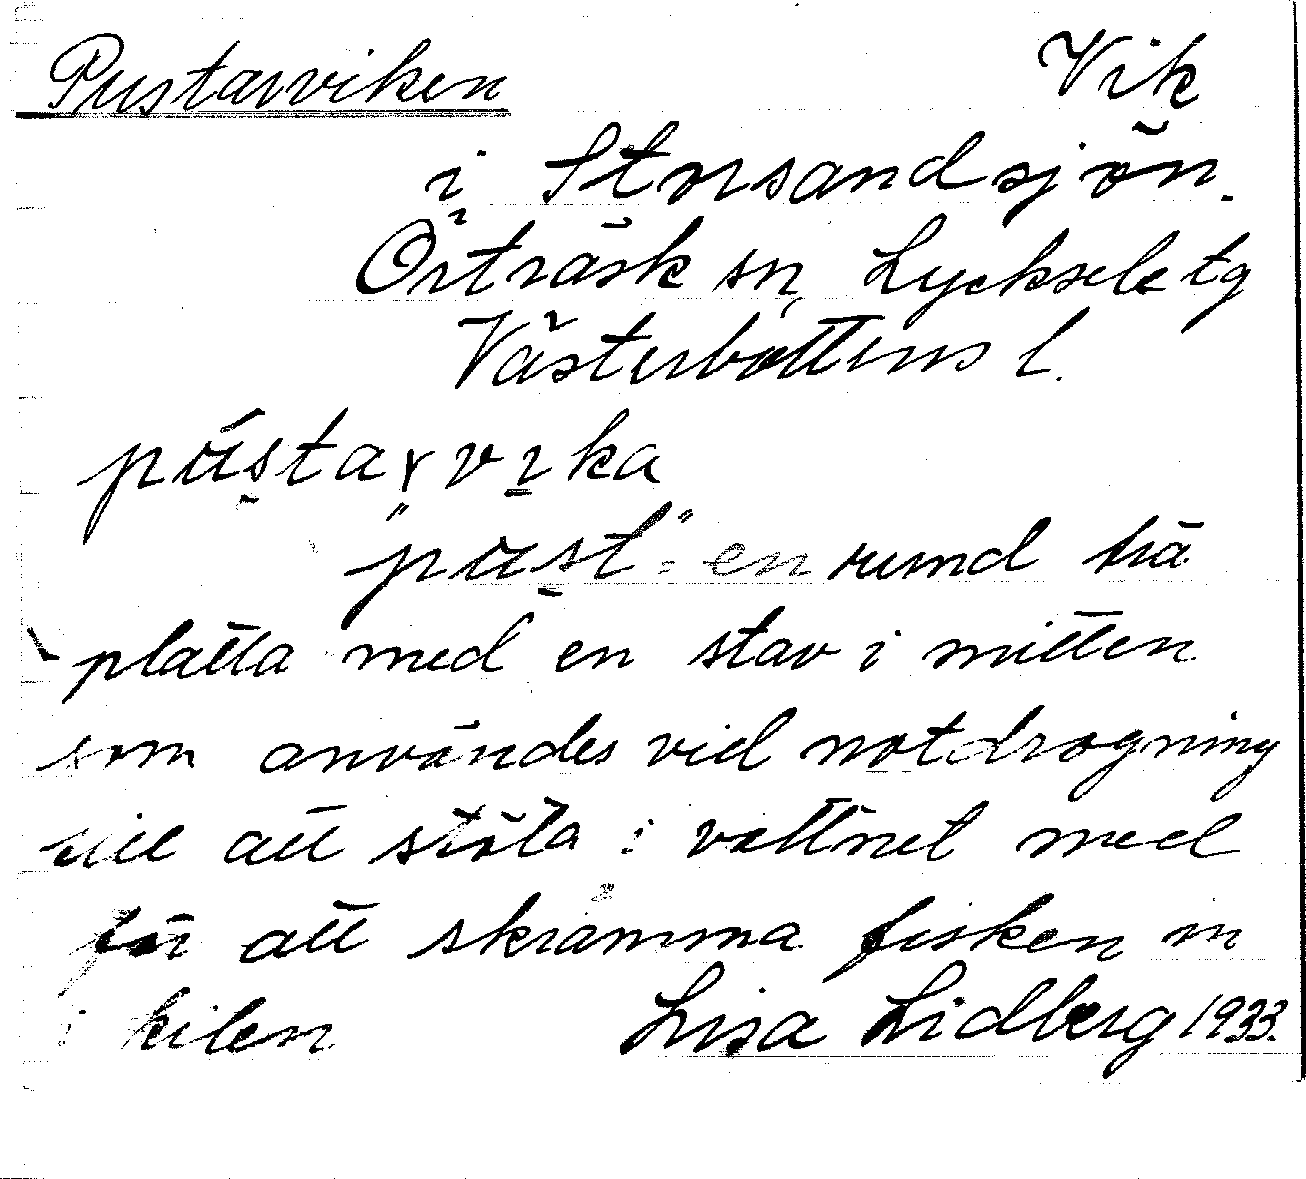 Pustarviken Vik
i Storsandsjön.
Örträsk sn, Lycksele tg
Västerbottens l.
pústarvıka
"púst" = en rund trä
platta med en stav i mitten
som användes vid notdragning
till att stöta i vattnet med
för att skrämma fisken in
i kilen Lisa Lidberg 1933.